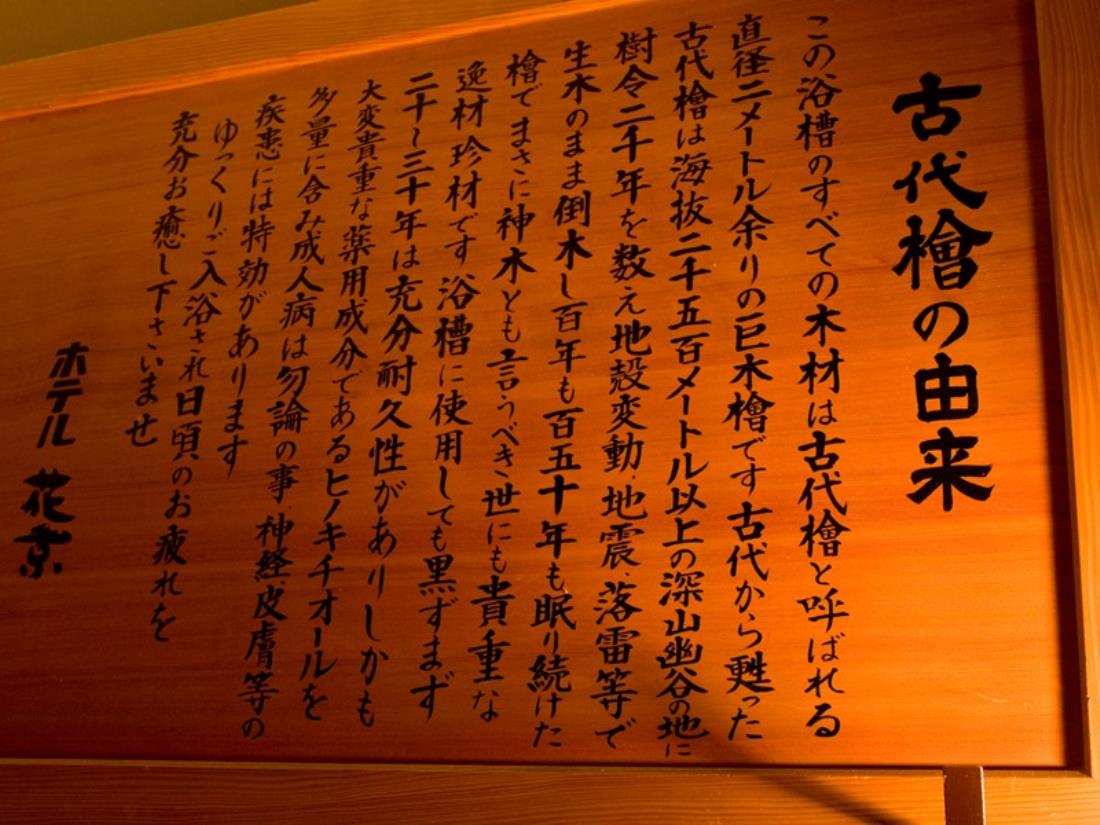 古代檜の由来
この浴槽のすべての木材は古代檜と呼ばれる
直径二メートル余りの巨木檜です古代から甦った
古代檜は海抜二千五百メートル以上の深山幽谷の地に
樹令二千年を数え地殻変動、地震、落雷等で
生木のまま倒木し百年も百五十年も眠り続けた
檜でまさに神木とも言うべき世にも貴重な
逸材珍材です浴槽に使用しても黒ずまず
二十～三十年は充分耐久性がありしかも
大変貴重な薬用成分であるヒノキチオールを
多量に含み成人病は勿論の事、神経、皮膚等の
疾患には特効があります
ゆっくりご入浴され日頃のお疲れを
充分お癒し下さいませ
ホテル 花京